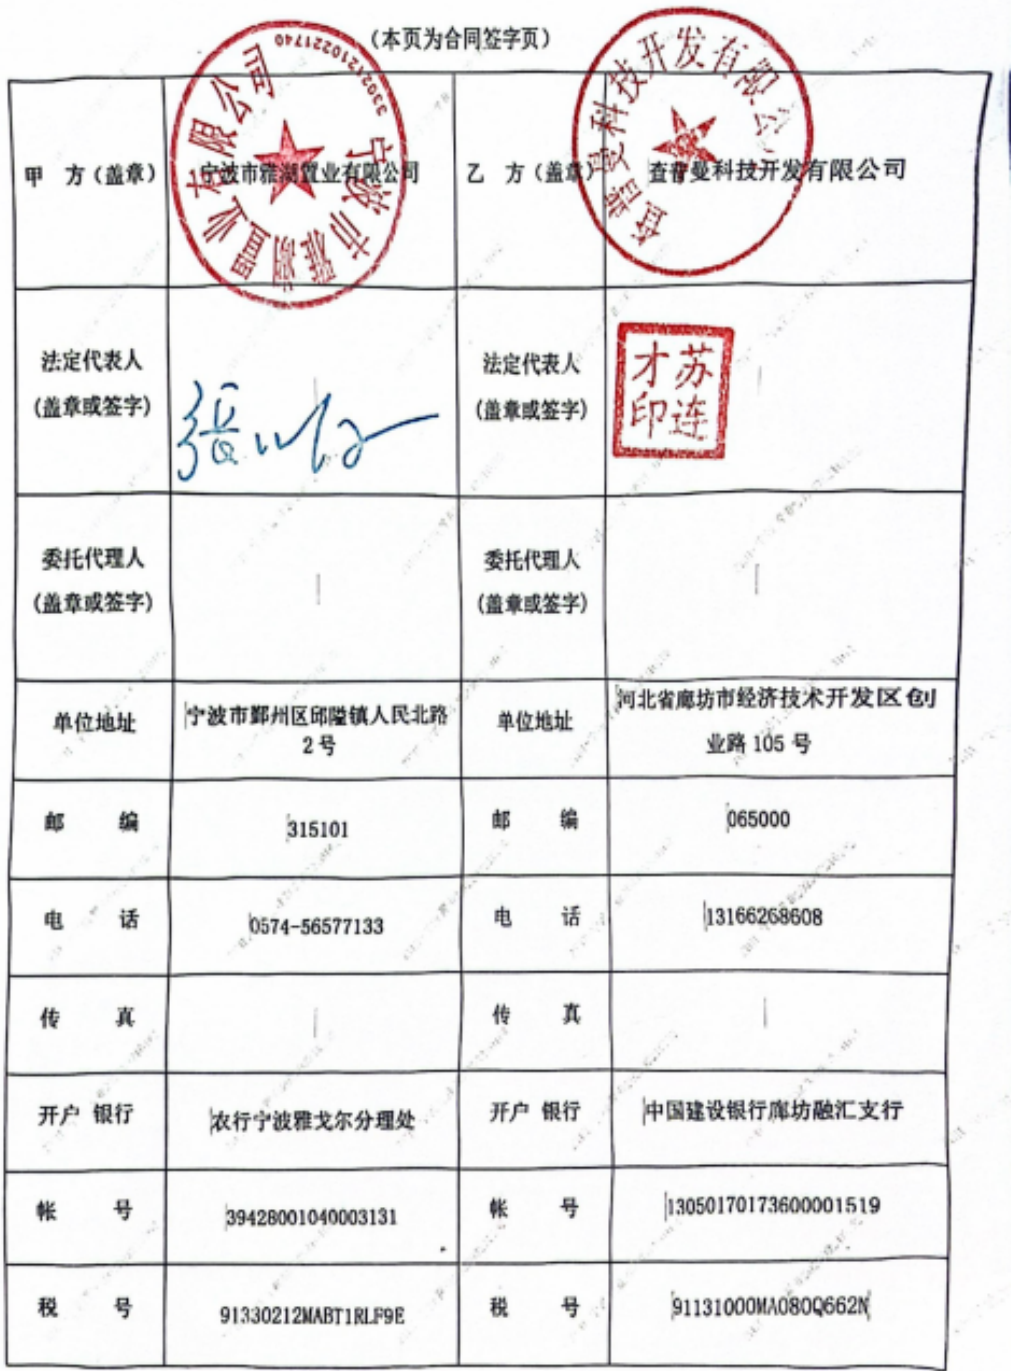 (本页为合同签字页)
甲 方(盖章)
宁波市雅湖置业有限公司
宁波市雅湖置业有限公司
乙 方(盖章)
查普曼科技开发有限公司
查普曼科技开发有限公司
法定代表人
(盖章或签字)
法定代表人
(盖章或签字)
苏连
才印
委托代理人
(盖章或签字)
委托代理人
(盖章或签字)
单位地址
宁波市鄞州区邱隘镇人民北路
2号
单位地址
河北省廊坊市经济技术开发区创
业路 105 号
邮 编
315101
邮 编
065000
电 话
0574-56577133
电 话
13166268608
传 真
传 真
开户 银行
农行宁波雅戈尔分理处
开户 银行
中国建设银行廊坊融汇支行
帐 号
39428001040003131
帐 号
13050170173600001519
税 号
91330212MABT1RLF9E
税 号
91131000MA080Q662N